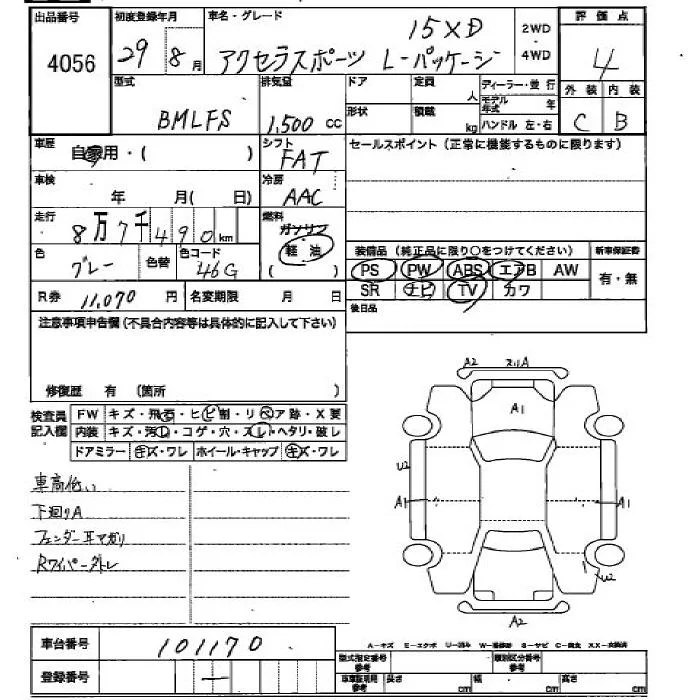 出品番号 初度登録年月 車名・グレード 15XD 2WD・4WD 評価点
4056 29 8月 アクセラスポーツ L-パッケージ 4
型式 排気量 ドア 定員 人 ディーラー・並行 外装 内装
BMLFS 1,500 cc 形状 積載 kg モデル年式 年 ハンドル 左・右 C B
車歴 自家用・( ) シフト FAT セールスポイント (正常に機能するものに限ります)
車検 年 月( 日) 冷房 AAC
走行 8万7千490km 燃料 ガソリン 軽油 ( )
色 グレー 色替 色コード 46G
装備品 (純正品に限り○をつけてください) 新車保証書
PS PW ABS エアB AW 有・無
SR ナビ TV カワ
R券 11,070 円 名変期限 月 日 後日品
注意事項申告欄 (不具合内容等は具体的に記入して下さい)
修復歴 有 (箇所 )
検査員記入欄 FW キズ・飛石・ヒビ割・リペア跡・X要
内装 キズ・汚れ・コゲ・穴・スレ・ヘタリ・破レ
ドアミラー キズ・ワレ ホイール・キャップ キズ・ワレ
車高低い
下廻りA
フェンダー耳マガリ
Rワイパー外レ
A2 スリA
A1
U2
A1 A1
U2
A2
車台番号 101170
登録番号 —
A-キズ E-エクボ U-凹み W-補修跡 S-サビ C-腐食 XX-交換済
型式指定番号 参考 類別区分番号 参考
車庫証明用 参考 長さ cm 幅 cm 高さ cm